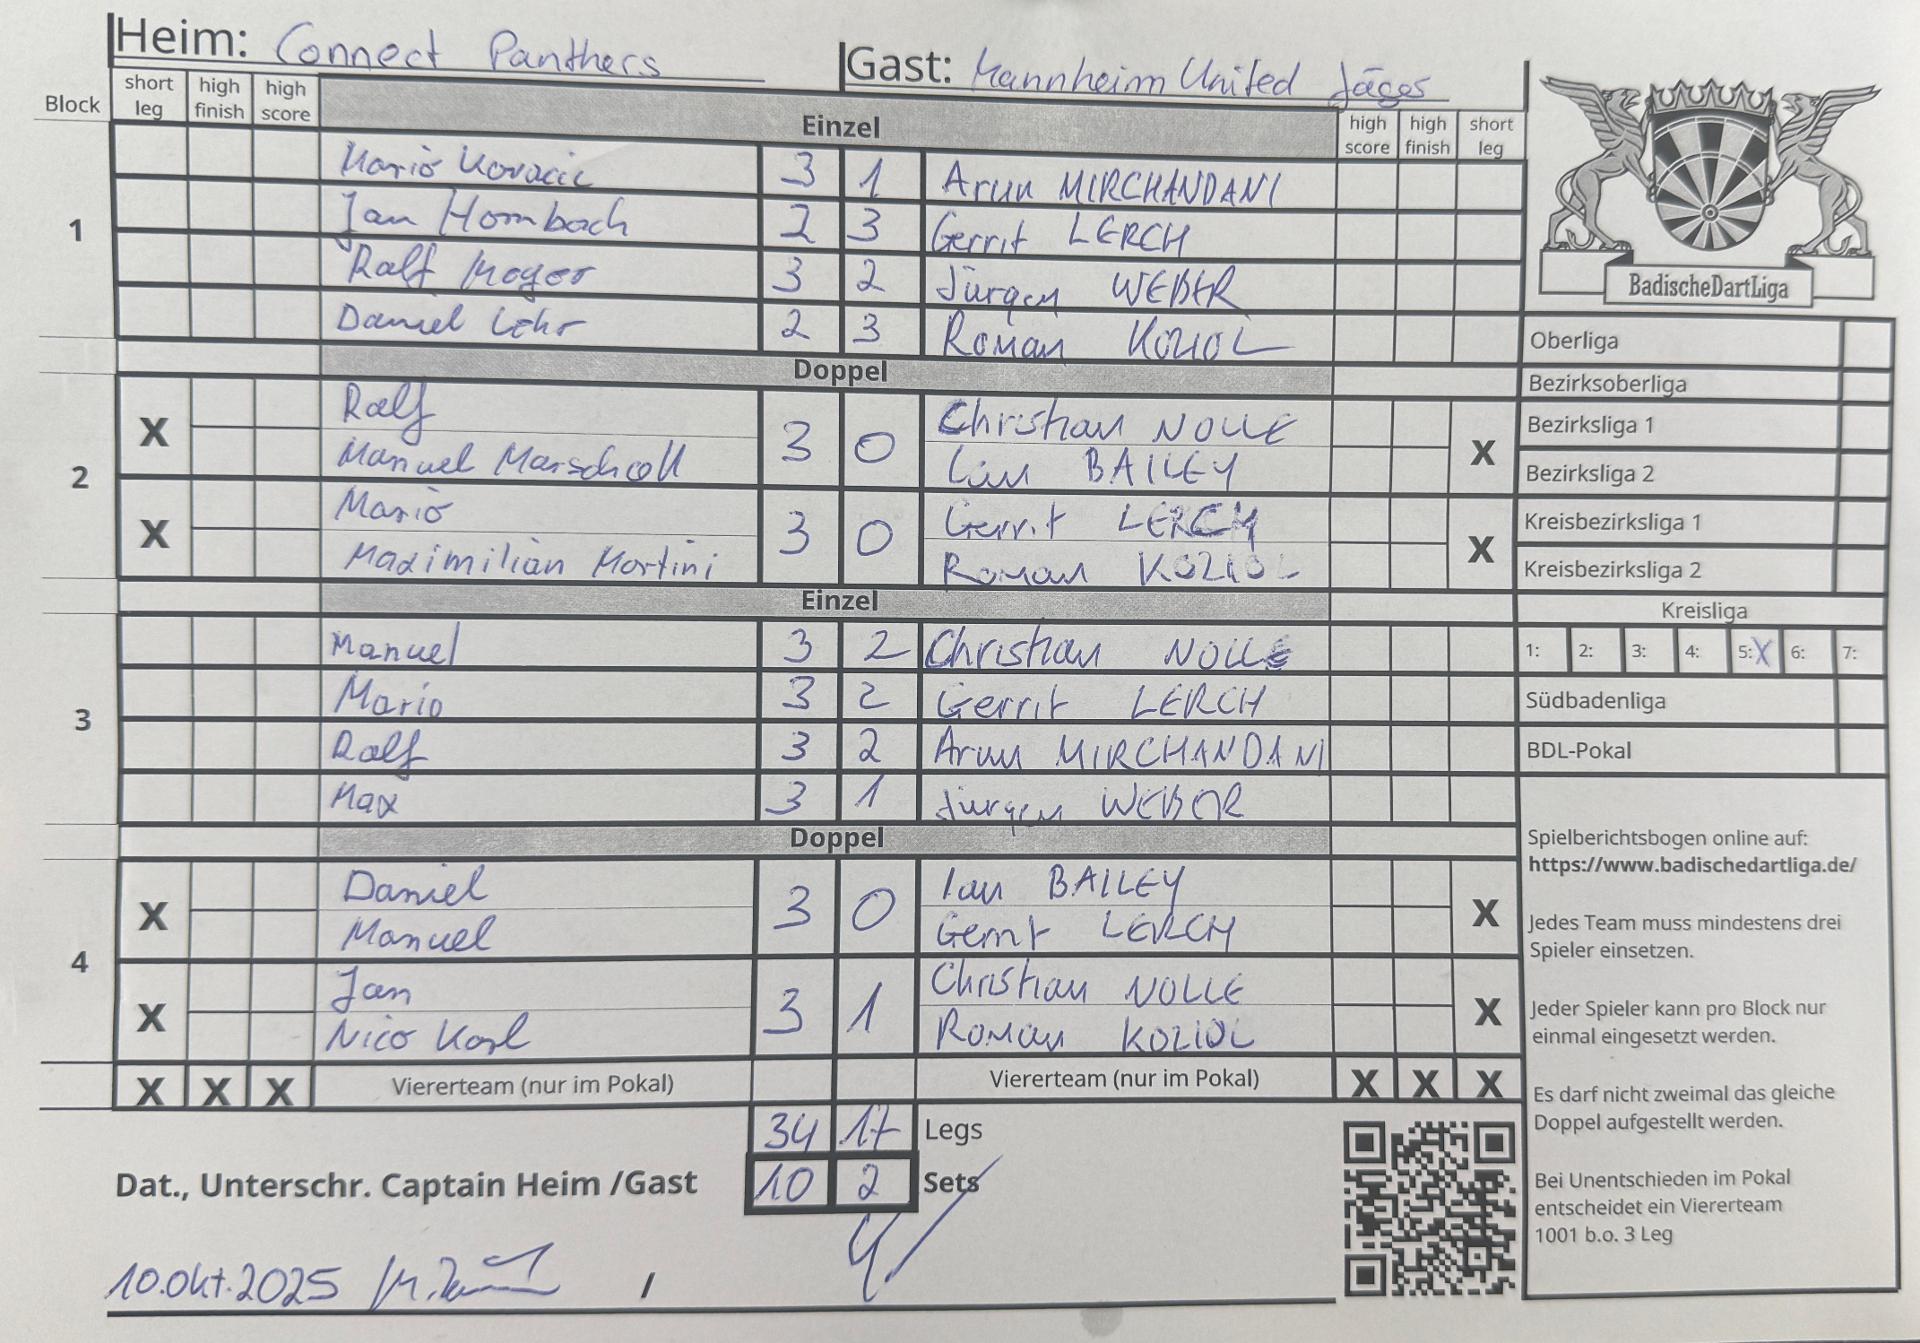 Heim: Connect Panthers Gast: Mannheim United Jäger
Block short leg high finish high score Einzel high score high finish short leg
1
Mario Kovacic 3 1 Arun MIRCHANDANI
Jan Hornbach 2 3 Gerrit LERCH
Ralf 3 2 Jürgen WEBER
Daniel Lehr 2 3 Roman KOZIOL
Doppel
2
X Ralf 3 0 Christian NOLLE X
Manuel Marscholl Ian BAILEY
X Mario 3 0 Gerrit LERCH X
Maximilian Martini Roman KOZIOL
Einzel
3
Manuel 3 2 Christian NOLLE
Mario 3 2 Gerrit LERCH
Ralf 3 2 Arun MIRCHANDANI
Max 3 1 Jürgen WEBER
Doppel
4
X Daniel 3 0 Ian BAILEY X
Manuel Gerrit LERCH
X Jan 3 1 Christian NOLLE X
Nico Karl Roman KOZIOL
X X X Viererteam (nur im Pokal) Viererteam (nur im Pokal) X X X
34 17 Legs
Dat., Unterschr. Captain Heim /Gast 10 2 Sets
10.Okt.2025 /
BadischeDartLiga
Oberliga
Bezirksoberliga
Bezirksliga 1
Bezirksliga 2
Kreisbezirksliga 1
Kreisbezirksliga 2
Kreisliga
1: 2: 3: 4: 5: X 6: 7:
Südbadenliga
BDL-Pokal
Spielberichtsbogen online auf:
https://www.badischedartliga.de/
Jedes Team muss mindestens drei
Spieler einsetzen.
Jeder Spieler kann pro Block nur
einmal eingesetzt werden.
Es darf nicht zweimal das gleiche
Doppel aufgestellt werden.
Bei Unentschieden im Pokal
entscheidet ein Viererteam
1001 b.o. 3 Leg